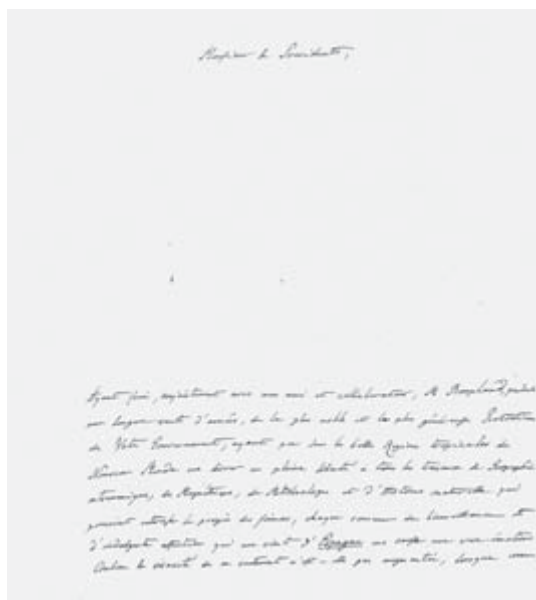 Monsieur le Président,
Ayant joui, conjointement avec mon ami et collaborateur, M Bonpland, pendant
une longue suite d'année, de la plus noble et la plus généreuse Protection
de Votre Gouvernement, ayant pu dans la belle Région tropicale de
Nouveau Monde me livrer en pleine liberté à tous les travaux de Géographie
astronomique, de Magnétisme, de Météorologie et d'Histoire naturelle qui
peuvent le progrès des sciences, chaque de bienveillance et
d'indulgente affection qui me vient d' me une vive émotion
la vivacité de ce n'est-elle pas augmentée, lorsque